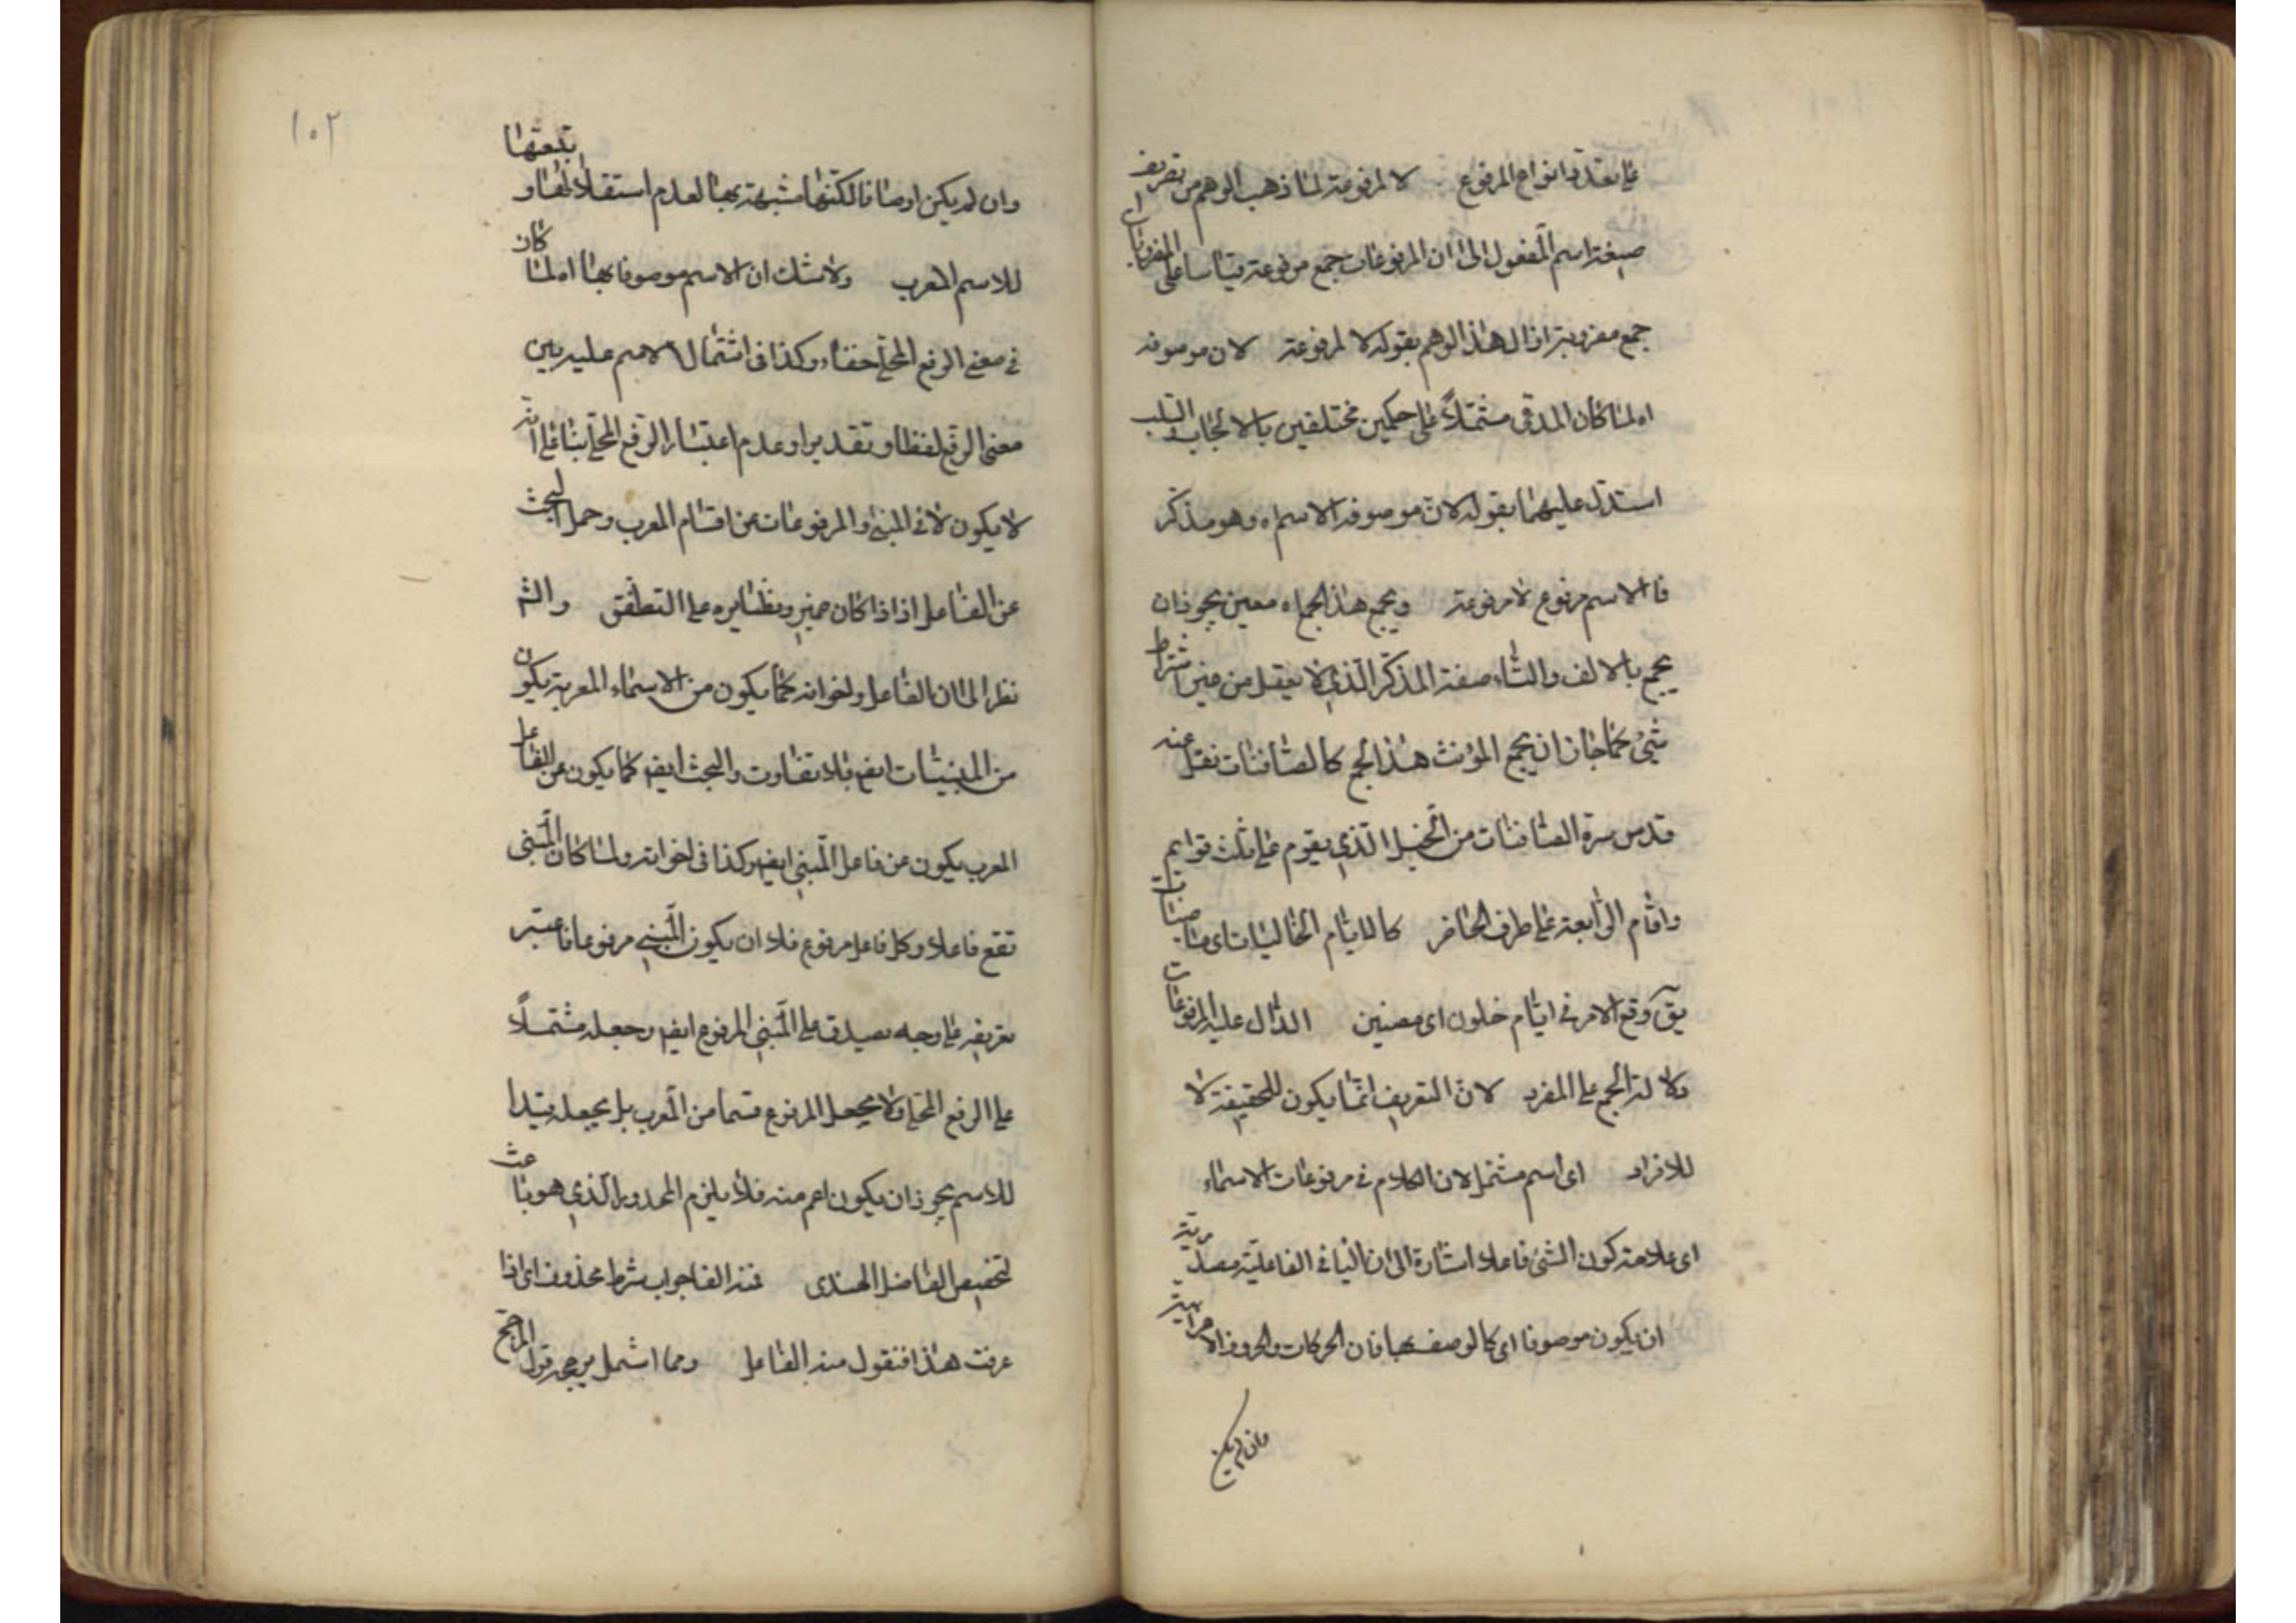 على تعدد انواع المرفوع لا لمرفوعة لما ذهب الوهم من تعريف
صيغة اسم المفعول الى ان المرفوعات جمع مرفوعة قياسا على المضروبات
جمع مضروبة ازال هذا الوهم بقوله لا لمرفوعة لان موصوفه
اه لما كان المدعى مشتملاً على حكمين مختلفين بالايجاب والسلب
استدل عليهما بقوله لان موصوفه الاسم اه وهو مذكر
فالاسم مرفوع لا مرفوعة ويجمع هذا الجمع اه معين يجوز ان
يجمع بالالف والتاء صفة المذكر الذي لا يعقل من غير اشتراط
شئ كما جاز ان يجمع المؤنث هذا الجمع كالصافنات نقل عنه
قدس سره الصافنات من الخيل الذي يقوم على ثلث قوايم
واقام الرابعة على طرف الحافر كالايام الخاليات اى ماضيات
يق وقع الامر في ايام خلون اى مضين الدال عليه المرفوعات
دلالة الجمع على المفرد لان التعريف انما يكون للحقيقة لا
للافراد اى اسم مشتمل لان الكلام في مرفوعات الاسماء
اى علامة كون الشئ فاعلا اشارة الى ان الياء في الفاعلية مصدرية
ان يكون موصوفا اى كالوصف بها فان الحركات والحروف الاعرابية
وان لم يكن
١٠٢
وان لم يكن اوصافا لكنها مشبهة بها لعدم استقلالها و تبعتها
للاسم المعرب ولا شك ان الاسم موصوف بها اه لما كان
في معنى الرفع المحلى خفاء وكذا في اشتمال الاسم عليه بين
معنى الرفع لفظا و تقديرا و عدم اعتبار الرفع المحلى بناء على انه
لا يكون الا في المبنى والمرفوعات من اقسام المعرب وحمل البحث
عن الفاعل اذا كان ضمير ونظايره على التطفل والشم
نظر الى ان الفاعل واخواته كما يكون من الاسماء المعربة يكون
من المبنيات ايضا بلا تفاوت والبحث ايضا كما يكون عن الفاعل
المعرب يكون عن فاعل المبنى ايضا وكذا في اخواته ولما كان المبنى
تقع فاعلا وكل فاعل مرفوع فلا ان يكون المبنى مرفوعا فاعتبر
تعريفه على وجه يصدق على المبنى المرفوع ايضا وجعله مشتملاً
على الرفع المحلى ولا يجعل المرفوع قسما من المعرب بل يجعله قيدا
للاسم يجوز ان يكون اعم منه فلا يلزم المحذور الذي هو باعث
لتخصيص الفاضل الهندى فمنه الفا جواب شرط محذوف اى اذا
عرفت هذا فنقول منه الفاعل ومما اشتمل يرجحه قول المرجح